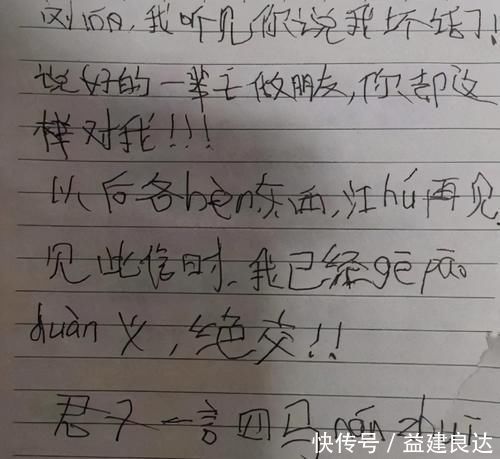 刘, 我听见你说我坏话了!
说好的一辈子做朋友,你却这
样对我!!!
以后各bèn东西,江hú再见
见此信时,我已经gē páo
duàn义,绝交!!
君子一言四马nán zhuī
快传号/益建良达